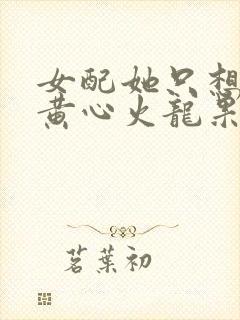 女配她只想
黄心火龙果
茗葉初